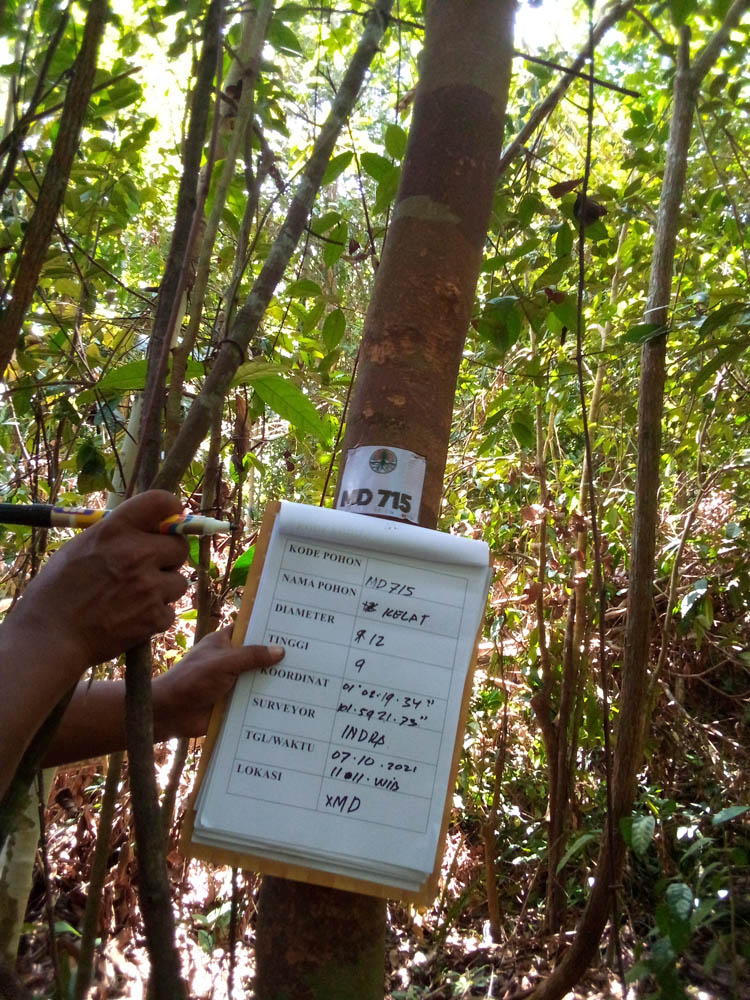 MD 715
KODE POHON MD 715
NAMA POHON KELAT
DIAMETER 12
TINGGI 9
KOORDINAT 01°02.19.34"
101.59.21.73"
SURVEYOR INDRA
TGL/WAKTU 07.10.2021
11.011.WIB
LOKASI XMD